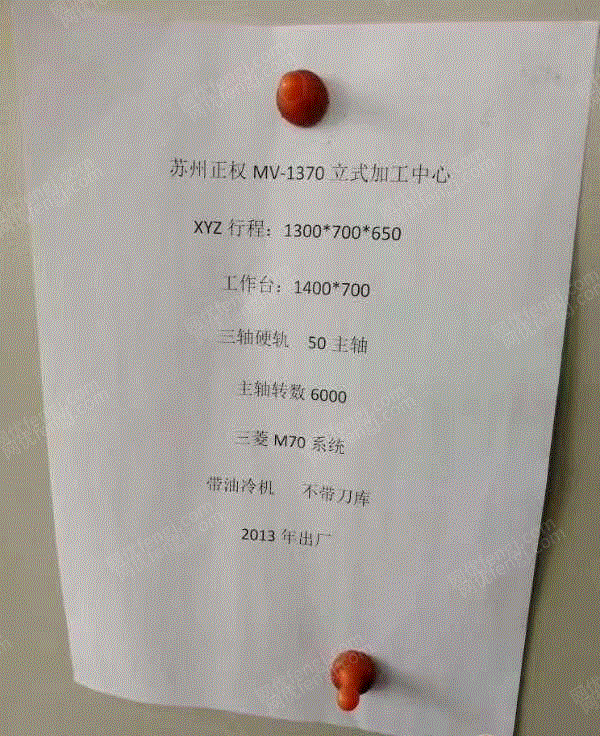 苏州正权 MV-1370 立式加工中心
XYZ 行程：1300*700*650
工作台：1400*700
三轴硬轨 50 主轴
主轴转数 6000
三菱 M70 系统
带油冷机 不带刀库
2013 年出厂